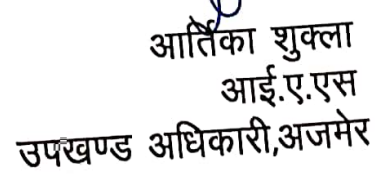 आर्तिका शुक्ला
आई.ए.एस
उपखण्ड अधिकारी,अजमेर